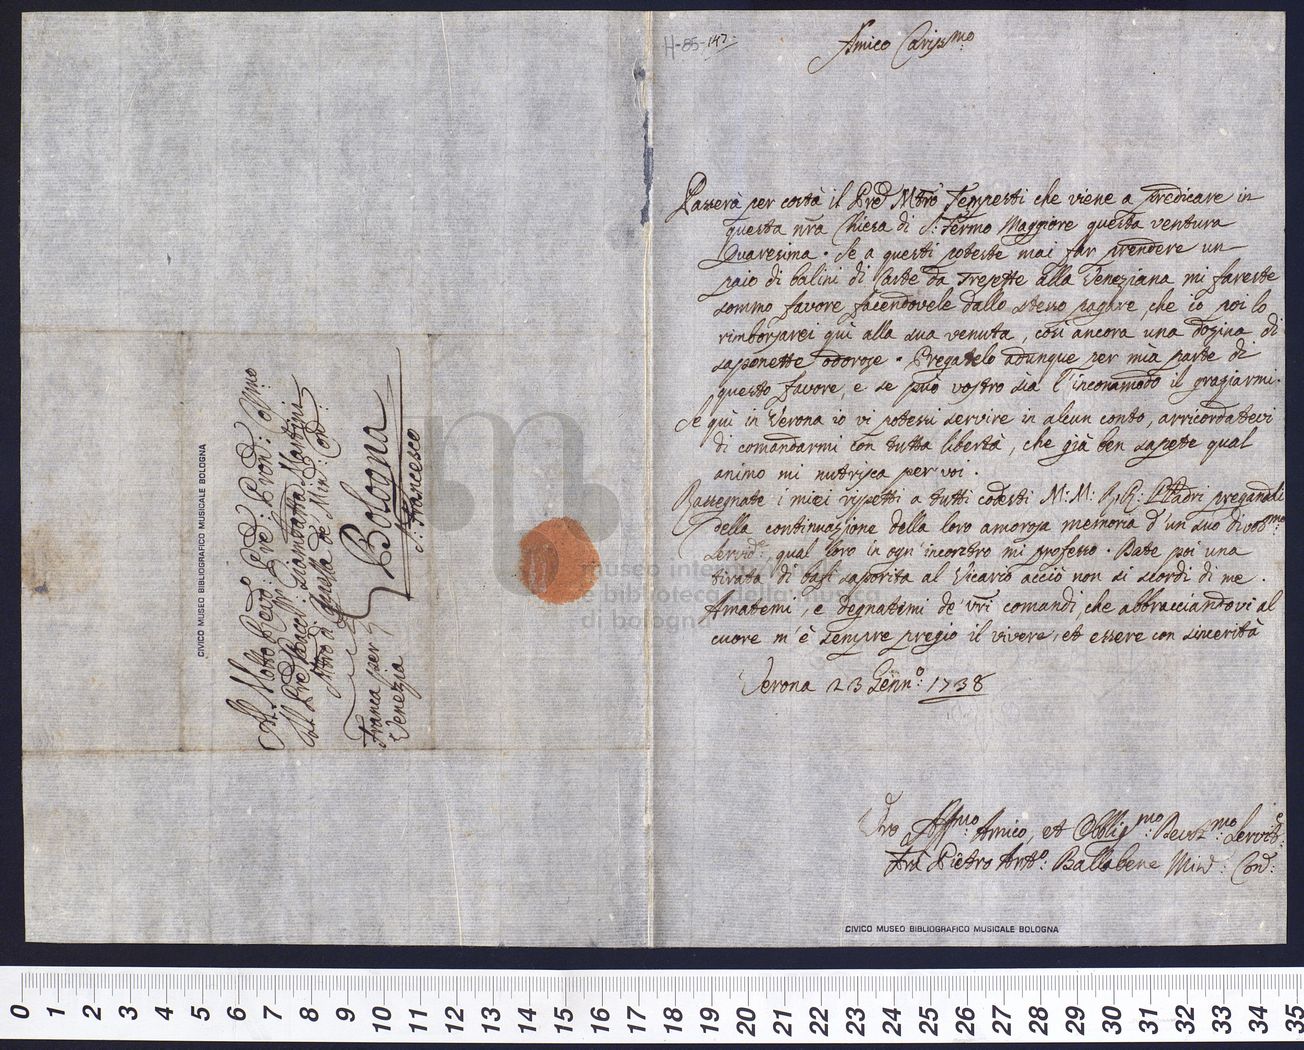 H-85-147.
Amico Cariss.mo
Passerà per costà il Pre Mrõ Tempesti che viene a predicare in
questa nrã Chiesa di S. Fermo Maggiore questa ventura
Quaresima. Se a questi poteste mai far prendere un
paio di balini di Carte da Trepette alla Veneziana mi fareste
sommo favore facendovele dallo stesso pagare, che io poi lo
rimborsarei quì alla sua venuta, così ancora una dozina di
saponette odorose. Pregatelo adunque per mia parte di
questo favore, e se può vostro sia l'incommodo il graziarmi.
Se quì in Verona io vi potessi servire in alcun conto, arricordatevi
di comandarmi con tutta libertà, che già ben sapete qual
animo mi nutrisca per voi.
Rassegnate i miei rispetti a tutti codesti M: M: R: R: Padri pregandoli
della continuazione della loro amorosa memoria d'un suo divot.mo
Servid.e, qual loro in ogn'incontro mi professo. Date poi una
tirata di saporita al Vicario acciò non si scordi di me.
Amatemi, e degnatimi de' vrĩ comandi, che abbracciandovi al
cuore m'è sempre pregio il vivere, et essere con sincerità
Verona 23 Genn.o: 1738
Vro Aff.mo Amico, et Obblig.mo Devot.mo Servit.e
Fra Pietro Ant.o: Ballabene Min: Con:
Al Molto Revdo: Pre: Pron: Colmo
Il Pre Maest. Giambatta Martini
de' Min: Con:
Bologna
S. Francesco
Franca per
Venezia
CIVICO MUSEO BIBLIOGRAFICO MUSICALE BOLOGNA
museo internazionale
e biblioteca della musica
di bologna
CIVICO MUSEO BIBLIOGRAFICO MUSICALE BOLOGNA
0 1 2 3 4 5 6 7 8 9 10 11 12 13 14 15 16 17 18 19 20 21 22 23 24 25 26 27 28 29 30 31 32 33 34 35